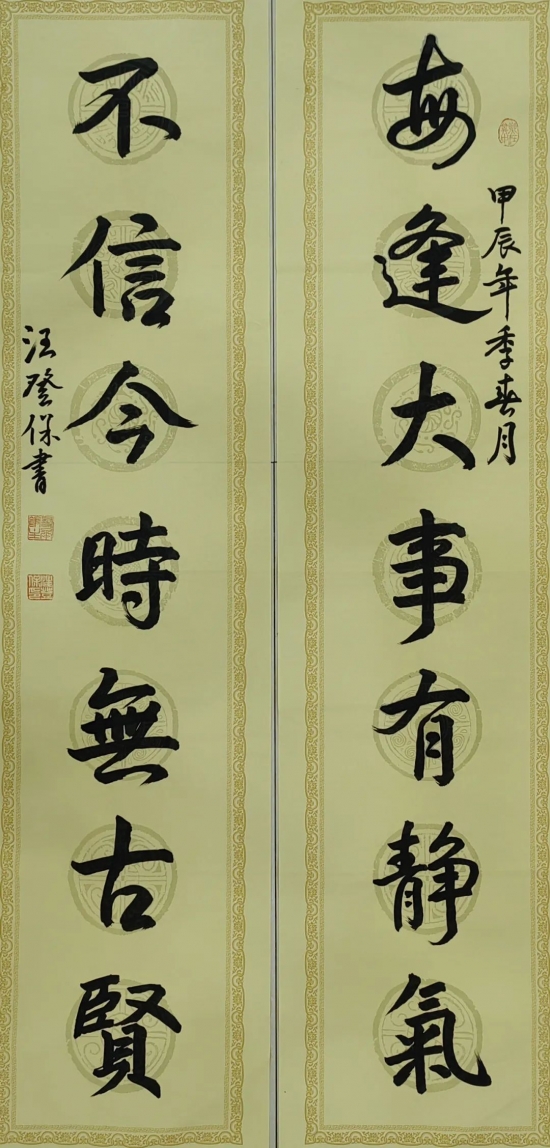 每逢大事有靜氣
甲辰年季春月
不信今時無古賢
汪登保書